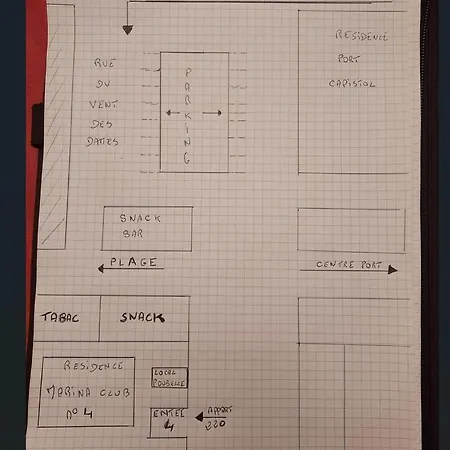 RUE
DU
VENT
DES
DAMES
PARKING
RESIDENCE
PORT
CAPISTOL
SNACK
BAR
PLAGE
CENTRE PORT
TABAC
SNACK
RESIDENCE
MARINA CLUB
n° 4
LOCAL
POUBELLE
ENTEE
4
APPART
220